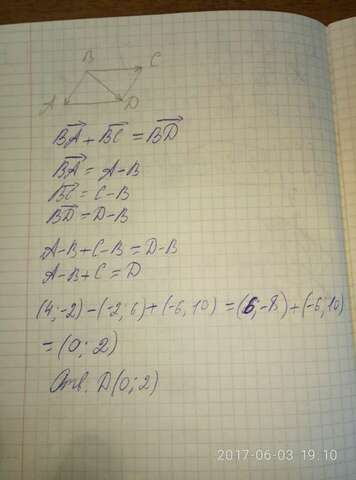 B C
A D
BA + BC = BD
BA = A-B
BC = C-B
BD = D-B
A-B+C-B=D-B
A-B+C=D
(4;-2)-(-2;6)+(-6,10)=(6;-8)+(-6;10)
=(0;2)
Отв. D(0;2)
2017-06-03 19:10